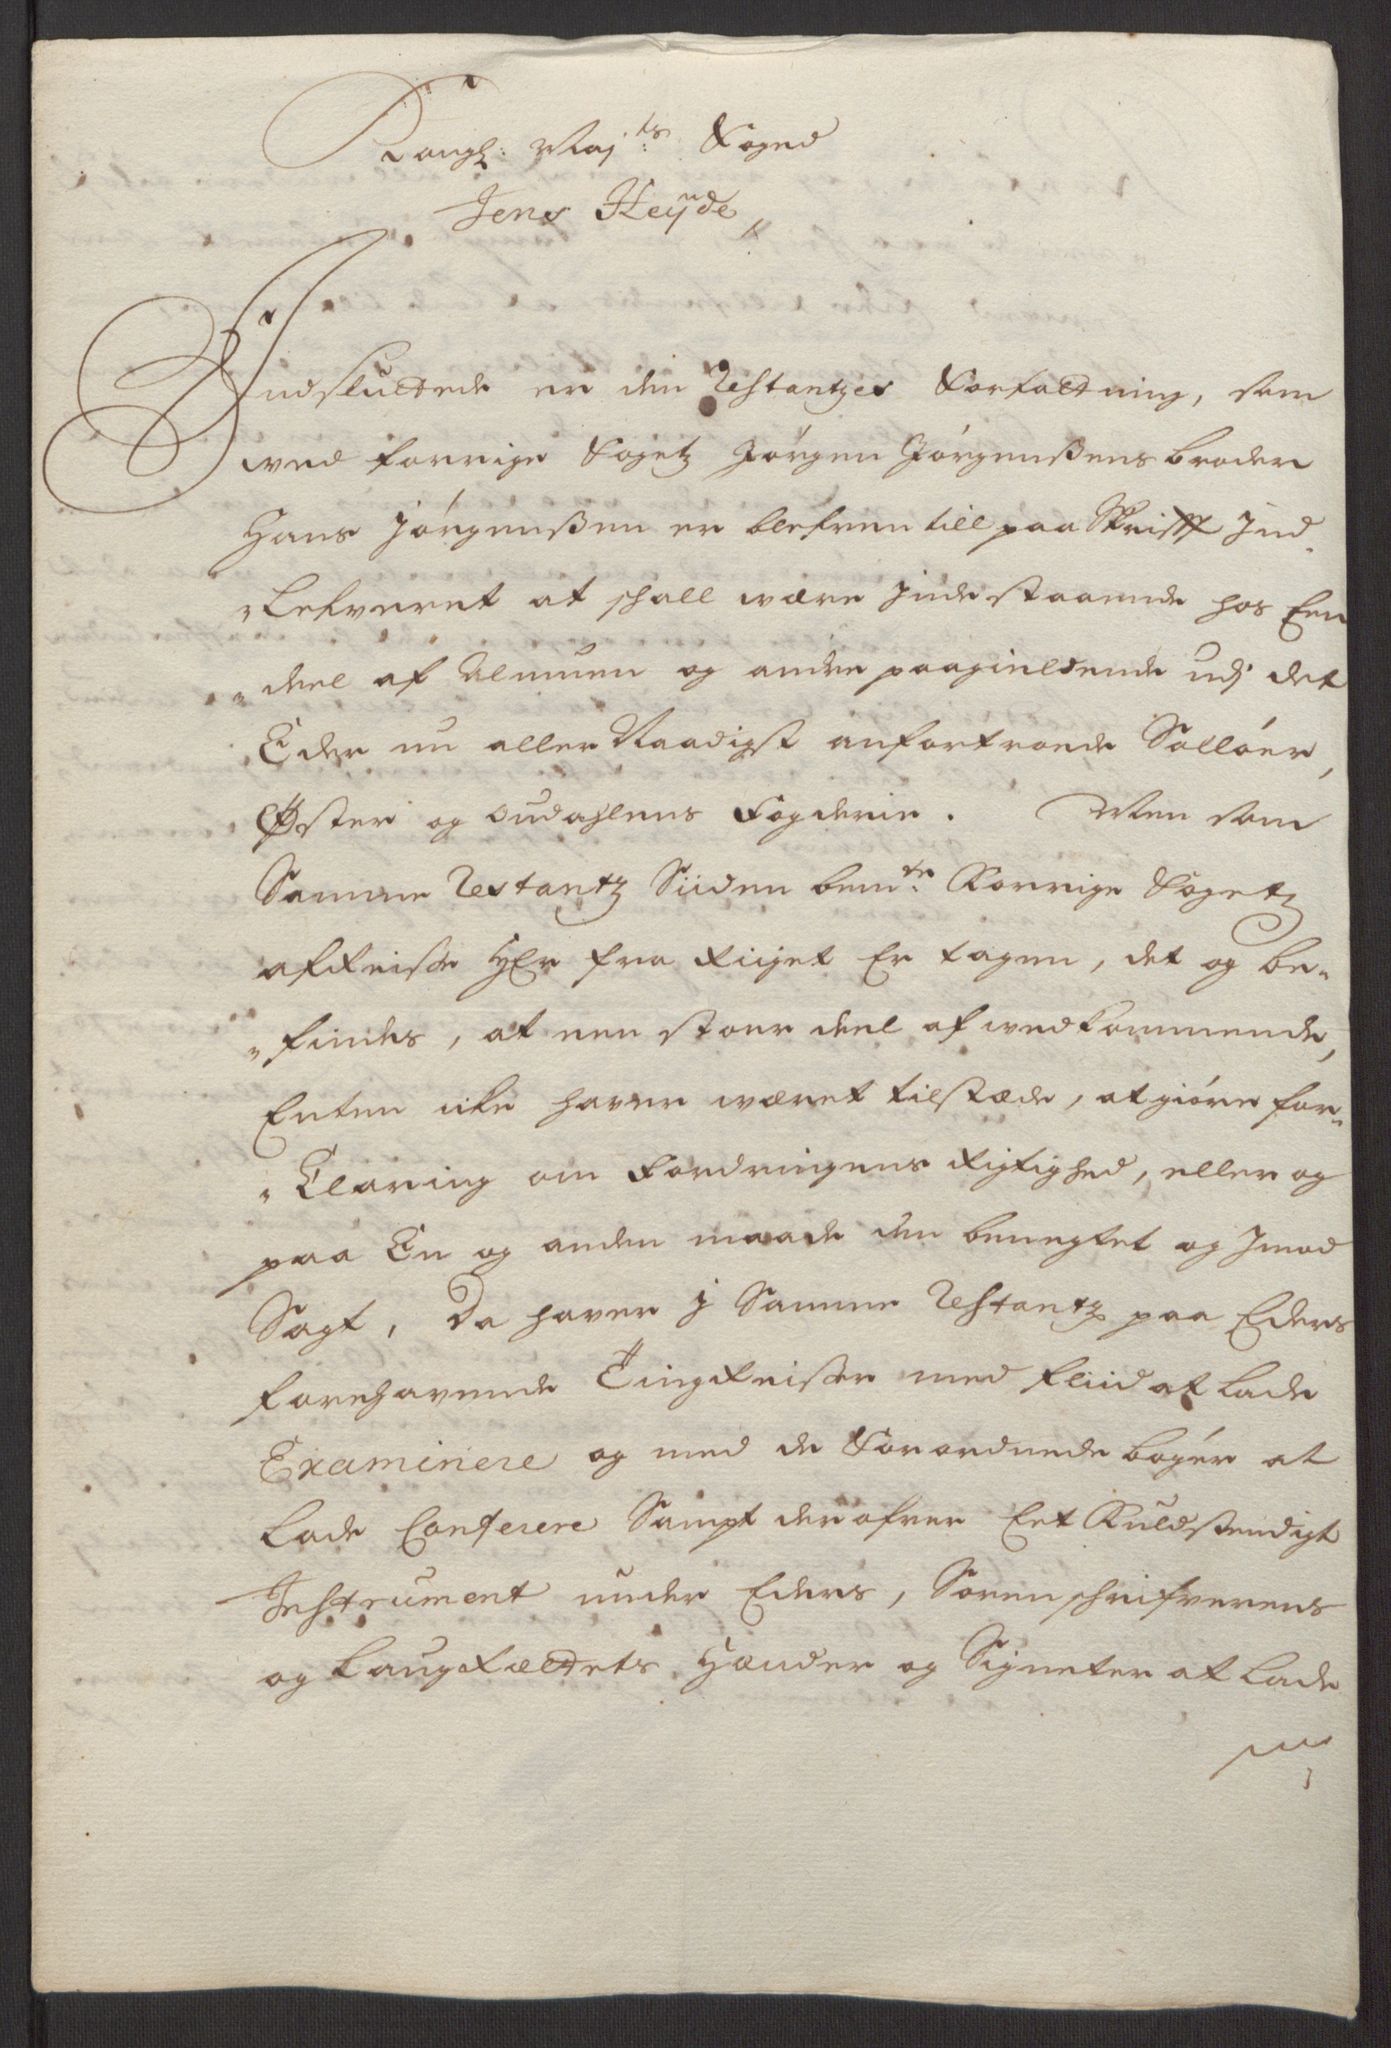 Kongl: Maj:ts Foged
Jens Heyde,
Indsluttede er den Restantzes Forfatdning, som
ved forrige Fogetz Jørgen Jørgenßens broder
Hans Jørgenßen er blefven till paa Skrifft Ind-
"lefveret at schall være Indestaaende hos Een
"deel af Almuen og andre paagieldende udj det
Eder nu aller Naadigst anfortroede Solløer,
Øster og oudahlens Fogderie. Men som
Samme Restantz Siiden bem:te Forrige Fogetz
afreisse her fra Riiget Er tagen, det og be-
"findes, at een stoer deel af vedkommende,
Enten icke hafver været tilstæde, at giøre for-
"Claring om Fordringens Rigtighed, eller og
paa En og anden maade den benegtet og Imod
Sagt, Da hafver I Samme Restantz paa Eders
forehavende Tingreisser med fliid at lade
Examinere og med de Forordnede bøger at
lade Conferere Sampt derofver Eet Fuldstendigt
Instrument under Eders, Sorenschrifverens
og Laugrættets Hænder og Signeter at lade